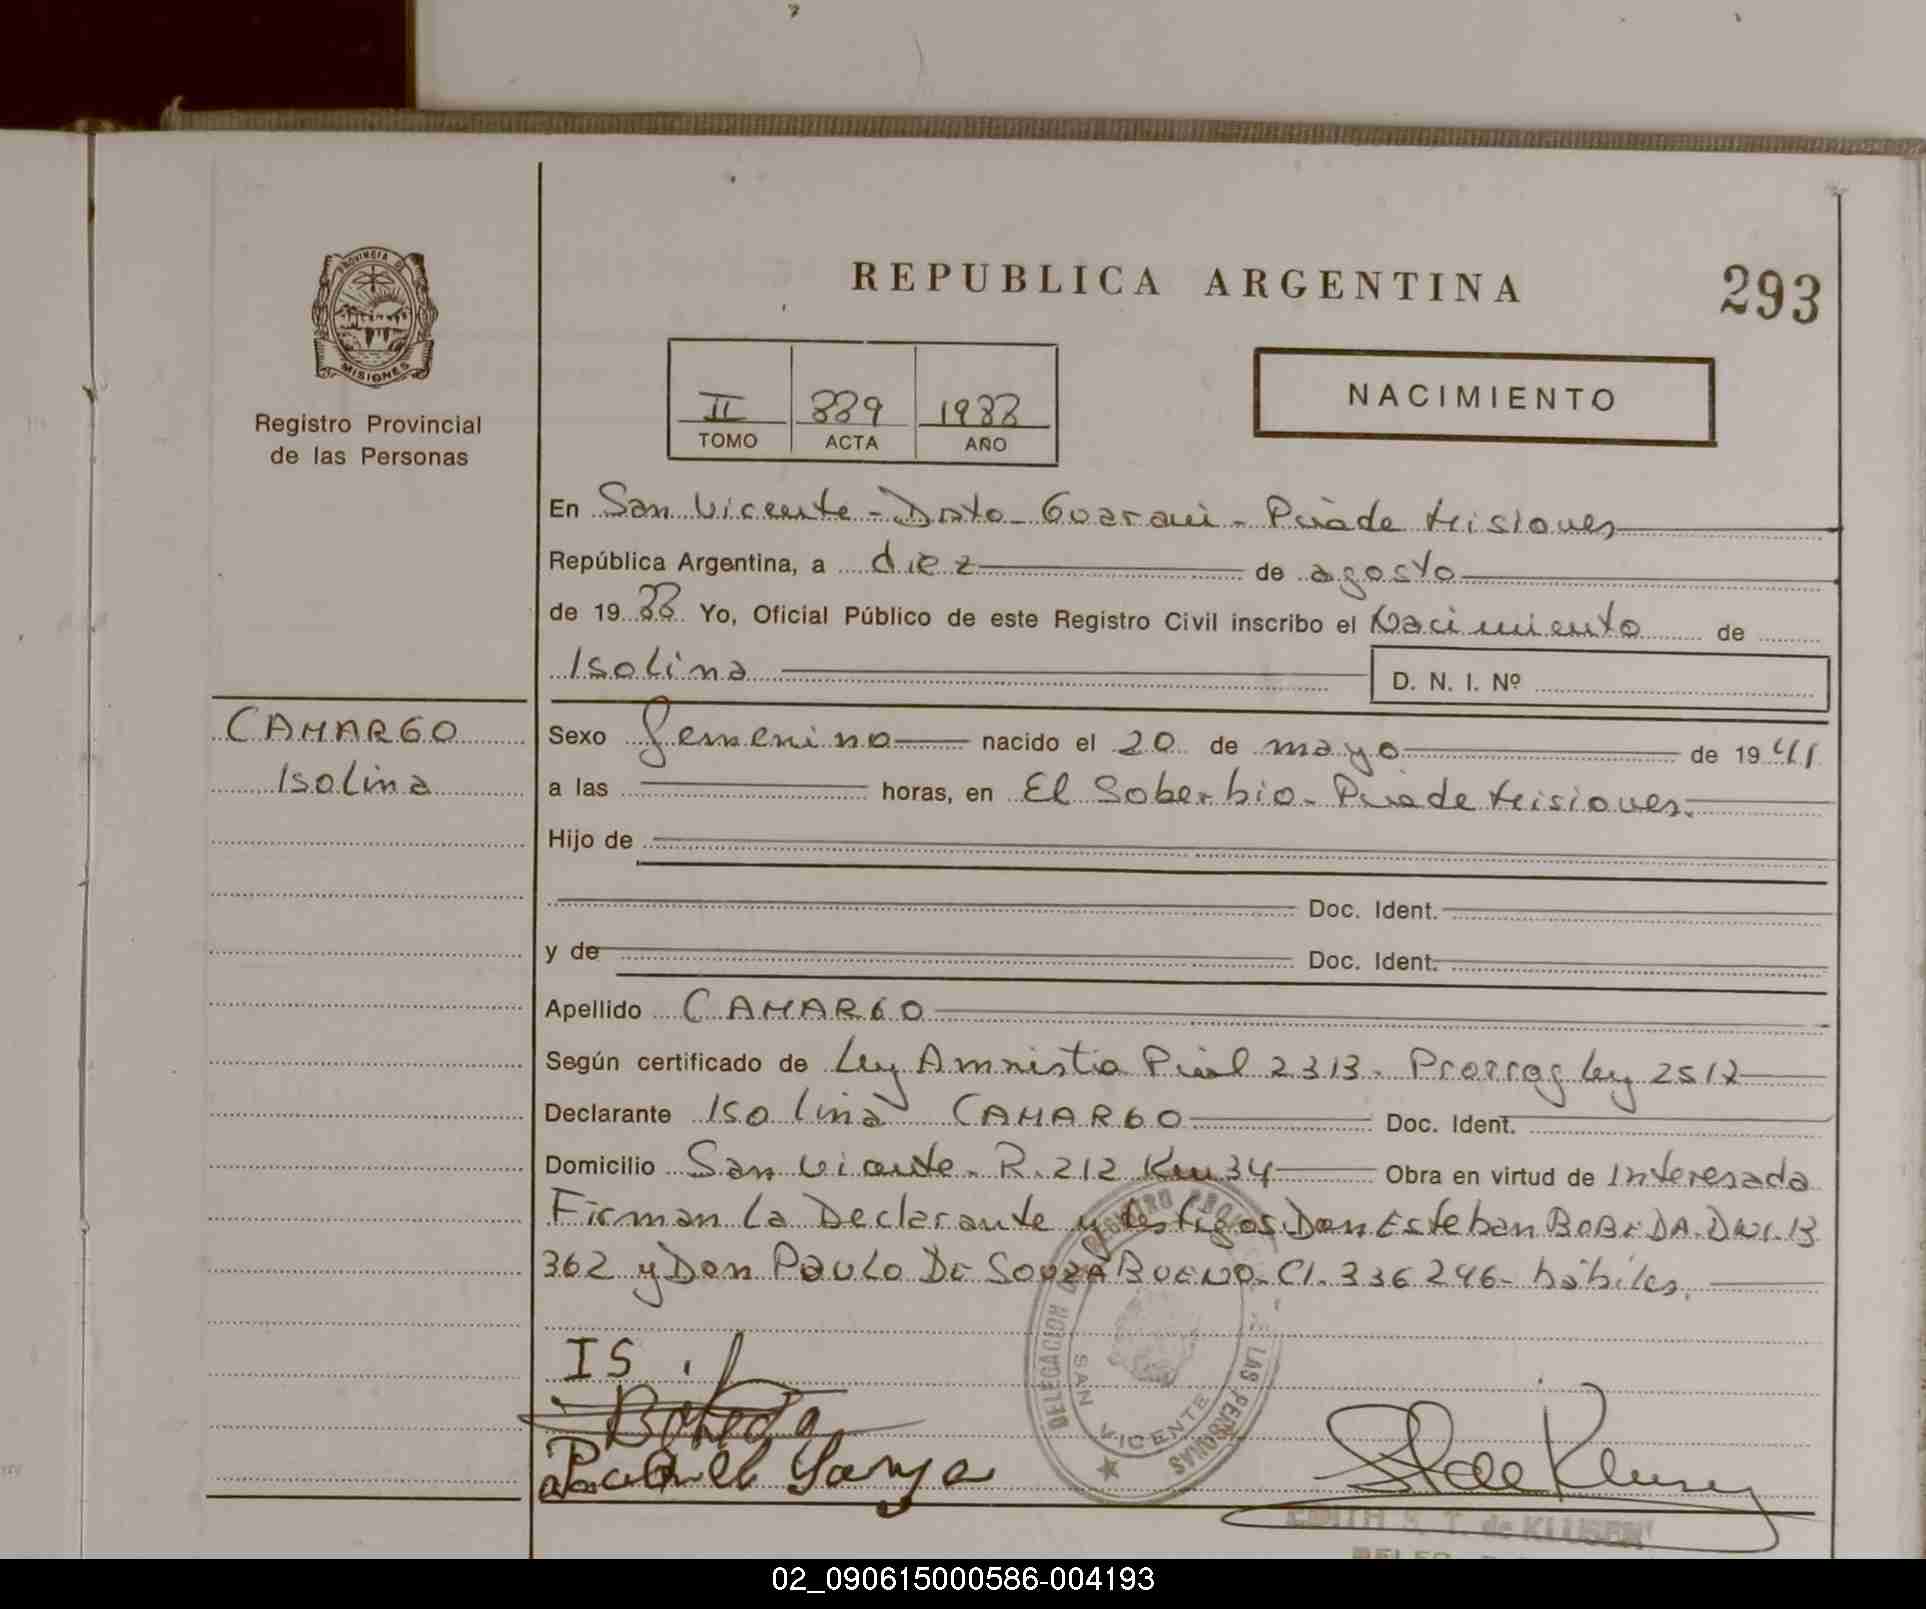 REPUBLICA ARGENTINA
293
PROVINCIA DE
MISIONES
Registro Provincial
de las Personas
II 889 1988
TOMO ACTA AÑO
NACIMIENTO
En San Vicente - Dpto - Guaraní - Pcia de Misiones
República Argentina, a diez de agosto
de 1988 Yo, Oficial Público de este Registro Civil inscribo el Nacimiento de
Isolina D. N. I. Nº
CAMARGO
Isolina
Sexo femenino nacido el 20 de mayo de 1941
a las horas, en El Soberbio - Pcia de Misiones.
Hijo de
Doc. Ident.
y de Doc. Ident.
Apellido CAMARGO
Según certificado de Ley Amnistia Pcial 2313 - Prorrog ley 2512
Declarante Isolina CAMARGO Doc. Ident.
Domicilio San Vicente - R. 212 Km 34 Obra en virtud de Interesada
Firman la Declarante y testigos Don Esteban BOBEDA. DNI. 13
362 y Don PAULO DE SOUZA BUENO - CI. 336 246 - hábiles.
DELEGACION DE REGISTRO PROVINCIAL DE LAS PERSONAS
SAN VICENTE
IS
Bobeda
EDITH S. T. de KLUSEN
02_090615000586-004193